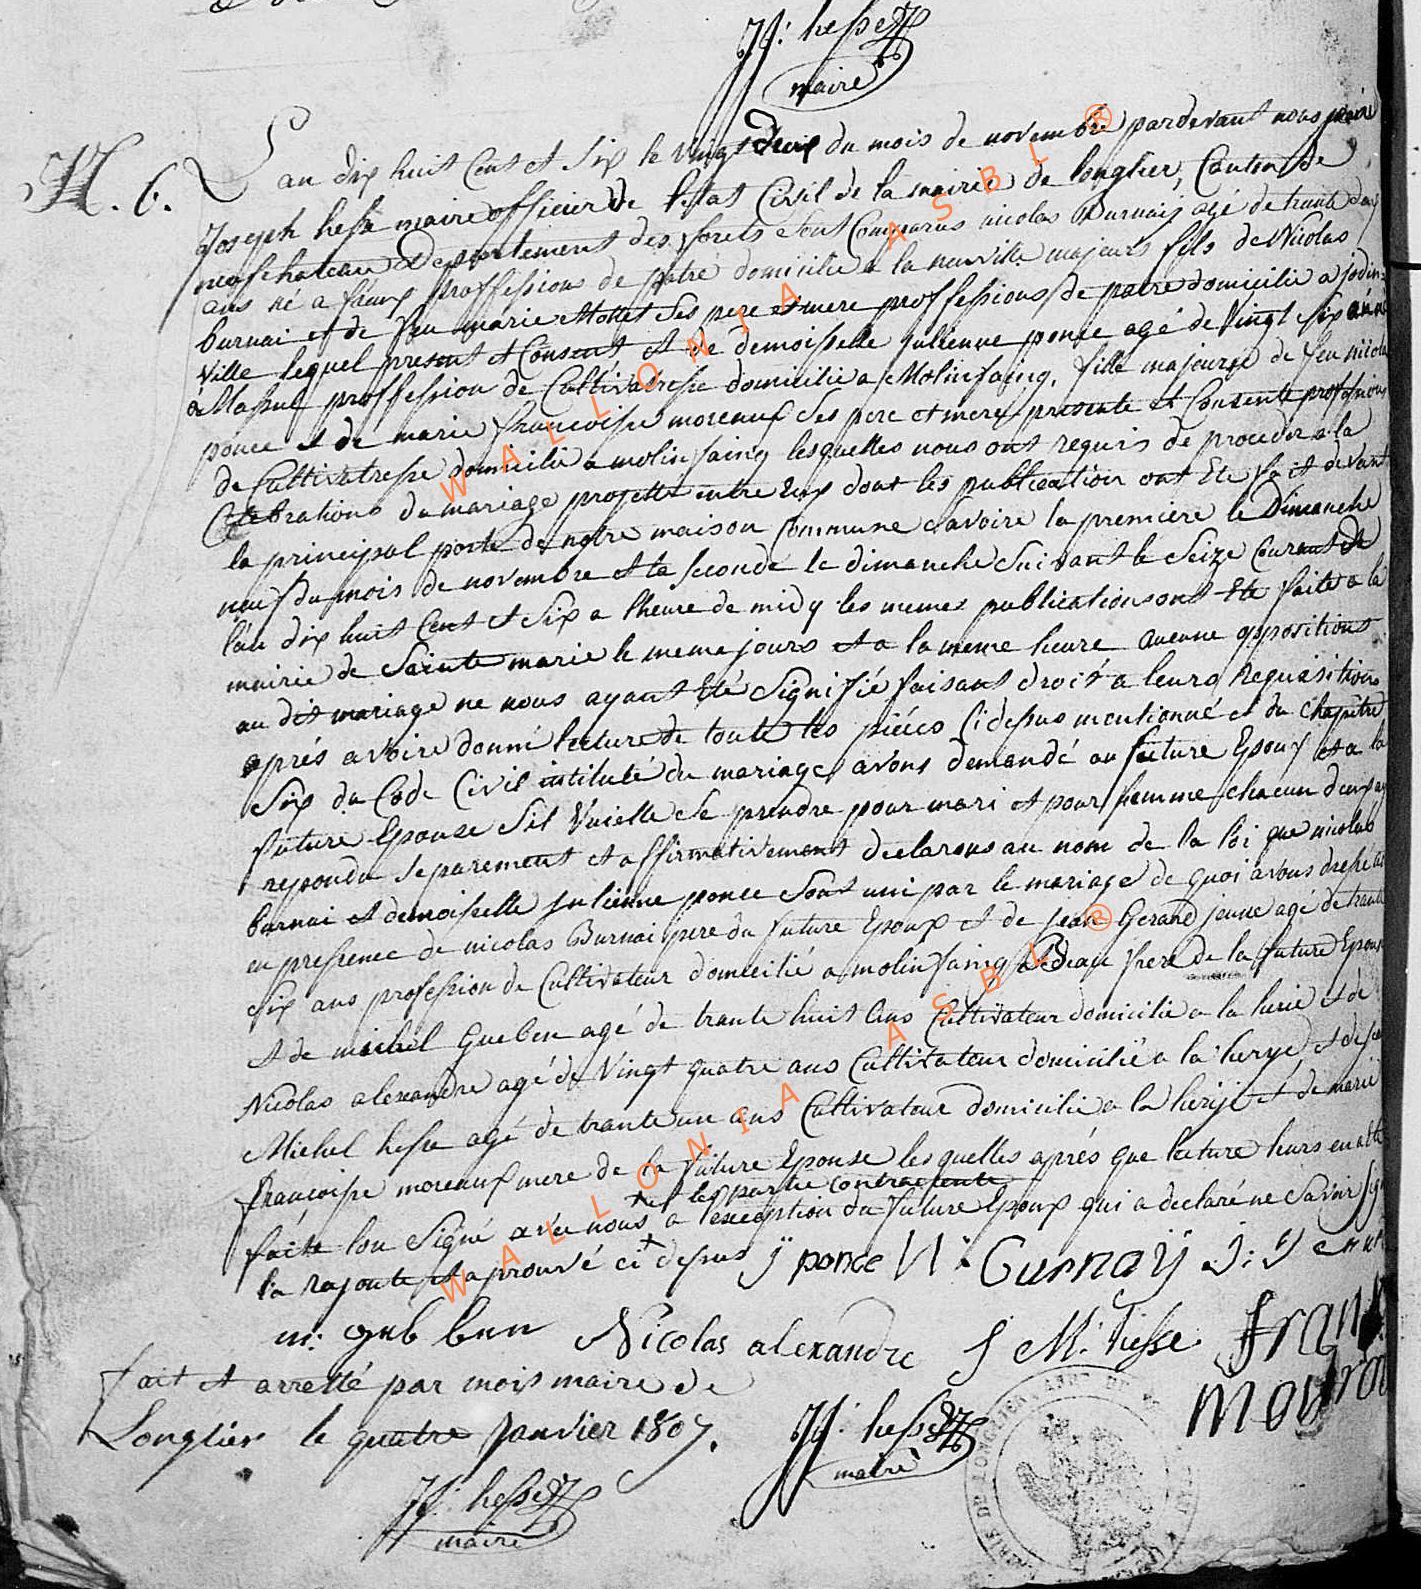 JJ: hesse
maire
N. 6. L'an dix huit Cent et Six le vingt deux du mois de novembre pardevant nous
Joseph hesse maire officier de letat Civil de la mairie de longlier, Canton de
neufchateau departement des forets sont Comparus nicolas Burnaij agé de trante
ans né a proffessions de patre domicilié a la neuville majeurs fils de Nicolas
burnai et de feu marie Mottet ses pere et mere proffessions de patre domicilié a jodin=
ville lequel present et Consent et de demoisselle Julienne ponce agé de Vingt six
a Massul proffession de Cultivatresse domicilié a Molinfaing. fille majeure de feu nicola
ponce et de marie francoisse moreaux ses pere et mere presente et Consente professions
de Cultivatresse domicilié a molinfaing lesquelles nous ont requis de proceder a la
Celebrations du mariage projetté entre Eux dont les publication ont Eté fait devant
la principal porte de notre maison Commune savoire la premiere le Dimanche
neuf du mois de novembre et la seconde le dimanche Suivant le Seize Courant de
l'an dix huit Cent et Six a l'heure de midy les memes publications ont Eté faite a la
mairie de Sainte marie le meme jours et a la meme heure aucune oppositions
au dit mariage ne nous ayant Eté Signifié faisant droit a leurs Requisitions
aprés avoire donné lecture de toute les piéces Cidessus mentionné et du Chapitre
Six du Code Civil intitulé du mariage avons demandé au future Epoux et a la
future Epouse Sil Veuelle Se prendre pour mari et pour femme chacun deux
repondu separement et affirmativement declarons au nom de la loi que nicolas
burnai et demoisselle julienne ponce Sont uni par le mariage de quoi avons dressé
en pressence de nicolas Burnai pere du future Epoux et de jean Gerard jeune agé de trante
six ans profession de Cultivateur domicilié a molinfaing frere de la future Epouse
et de michel Gueben agé de trante huit ans Cultivateur domicilié a la et de
Nicolas alexandre agé de Vingt quatre ans Cultivateur domicilié a la et de
Michel hesse agé de trante un ans Cultivateur domicilié a la et de marie
francoisse moreaux mere de la future Epouse lesquelles aprés que lecture leurs en
les partie contractente
faite lon Signé avéc nous a lexception du future Epoux qui a declaré ne Savoir
la rajoute et aprouvé ci dessus J ponce N: Gurnaÿ
m: gub ben Nicolas alexandre J M. hesse fran
mor
fait et arretté par mois maire de
Longlier le quatre Janvier 1807.
JJ: hesse
maire
JJ: hesse
maire
MAIRIE DE LONGLIER
WALLONIA ASBL ®
WALLONIA ASBL ®